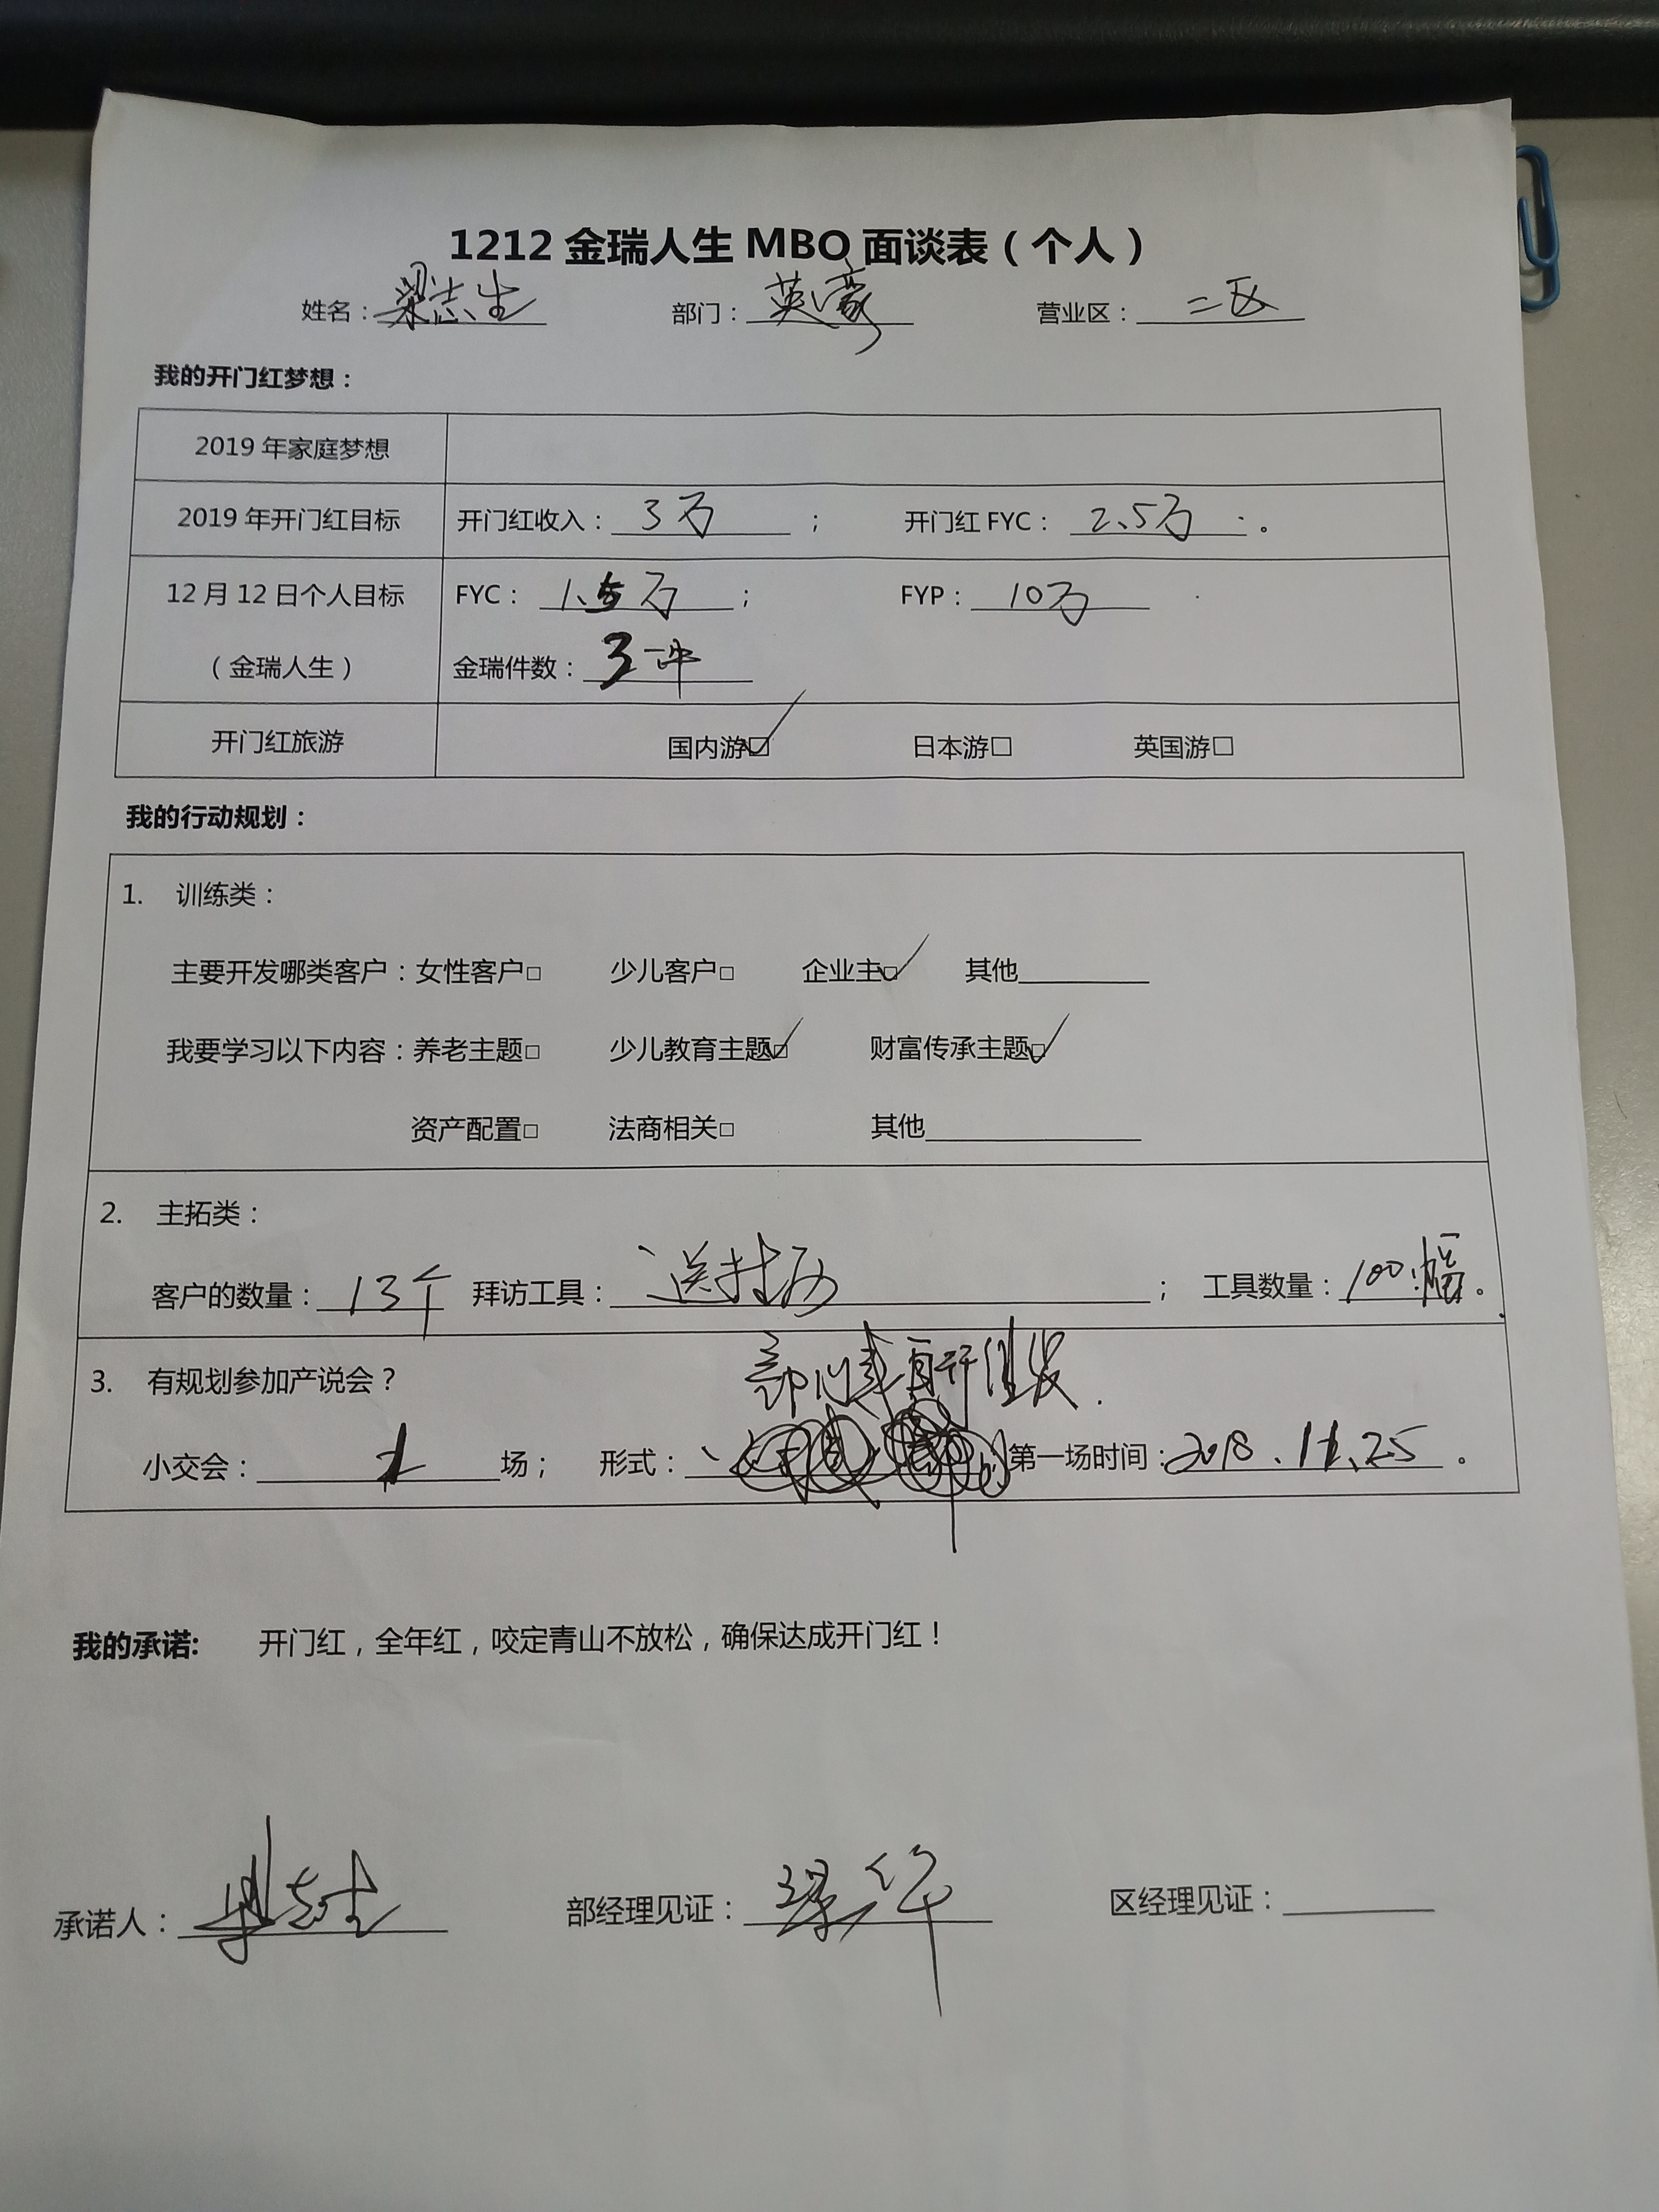 1212 金瑞人生 MBO 面谈表（个人）
姓名：梁志生 部门：英豪 营业区：二区
我的开门红梦想：
2019 年家庭梦想
2019 年开门红目标 开门红收入：3万； 开门红 FYC：2.5万。
12 月 12 日个人目标 FYC：1.5万； FYP：10万
（金瑞人生） 金瑞件数：3件
开门红旅游 国内游☑ 日本游□ 英国游□
我的行动规划：
1. 训练类：
主要开发哪类客户：女性客户□ 少儿客户□ 企业主☑ 其他
我要学习以下内容：养老主题□ 少儿教育主题☑ 财富传承主题☑
资产配置□ 法商相关□ 其他
2. 主拓类：
客户的数量：13个 拜访工具：送挂历； 工具数量：100幅。
3. 有规划参加产说会？
部门
小交会：1场； 形式： 第一场时间：2018.11.25。
我的承诺: 开门红，全年红，咬定青山不放松，确保达成开门红！
承诺人：梁志生 部经理见证： 区经理见证：